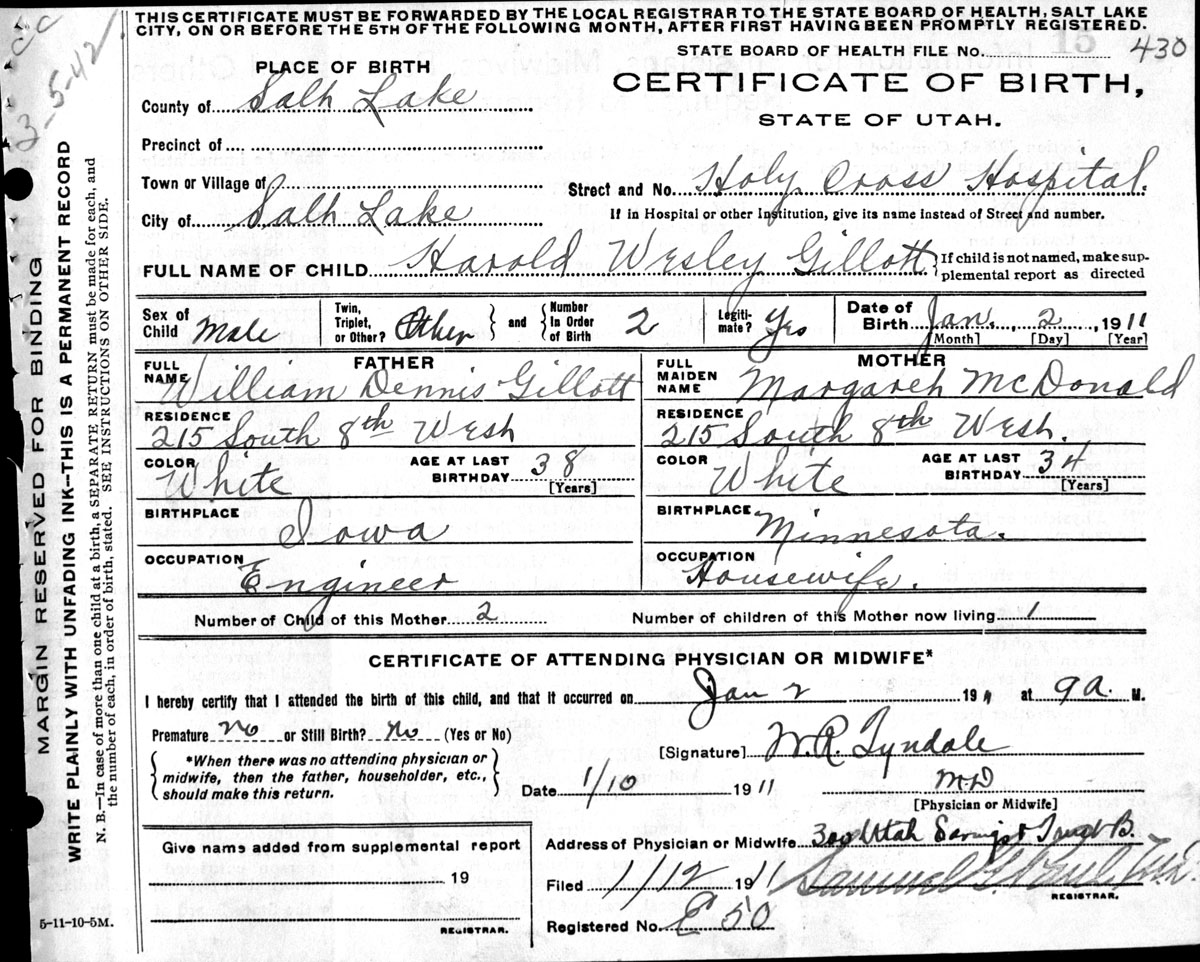 THIS CERTIFICATE MUST BE FORWARDED BY THE LOCAL REGISTRAR TO THE STATE BOARD OF HEALTH, SALT LAKE
CITY, ON OR BEFORE THE 5TH OF THE FOLLOWING MONTH, AFTER FIRST HAVING BEEN PROMPTLY REGISTERED.
STATE BOARD OF HEALTH FILE No. 430
15
3-5-42
PLACE OF BIRTH
CERTIFICATE OF BIRTH,
STATE OF UTAH.
County of Salt Lake
Precinct of
Town or Village of
Street and No. Holy Cross Hospital.
City of Salt Lake
If in Hospital or other Institution, give its name instead of Street and number.
FULL NAME OF CHILD Harold Wesley Gillott
If child is not named, make sup-
plemental report as directed
Sex of Child Male
Twin, Triplet, or Other? Other
and
Number In Order of Birth 2
Legiti-mate? Yes
Date of Birth Jan. , 2 , 1911
[Month] [Day] [Year]
FATHER
FULL NAME William Dennis Gillott
RESIDENCE
215 South 8th West
COLOR White
AGE AT LAST BIRTHDAY 38
[Years]
BIRTHPLACE Iowa
OCCUPATION Engineer
MOTHER
FULL MAIDEN NAME Margaret McDonald
RESIDENCE
215 South 8th West.
COLOR White
AGE AT LAST BIRTHDAY 34
[Years]
BIRTHPLACE Minnesota.
OCCUPATION Housewife.
Number of Child of this Mother 2
Number of children of this Mother now living 1
CERTIFICATE OF ATTENDING PHYSICIAN OR MIDWIFE*
I hereby certify that I attended the birth of this child, and that it occurred on Jan 2 1911 at 9 a M.
Premature no or Still Birth? no (Yes or No)
[Signature] W.R. Tyndale
*When there was no attending physician or
midwife, then the father, householder, etc.,
should make this return.
Date 1/10 1911
M.D
[Physician or Midwife]
Give name added from supplemental report
19
REGISTRAR.
Address of Physician or Midwife 300 Utah Savings & Trust B.
Filed 1/12 1911
REGISTRAR.
Registered No. E 50
5-11-10-5M.
MARGIN RESERVED FOR BINDING
WRITE PLAINLY WITH UNFADING INK--THIS IS A PERMANENT RECORD
N. B.—In case of more than one child at a birth, a SEPARATE RETURN must be made for each, and
the number of each, in order of birth, stated. SEE INSTRUCTIONS ON OTHER SIDE.